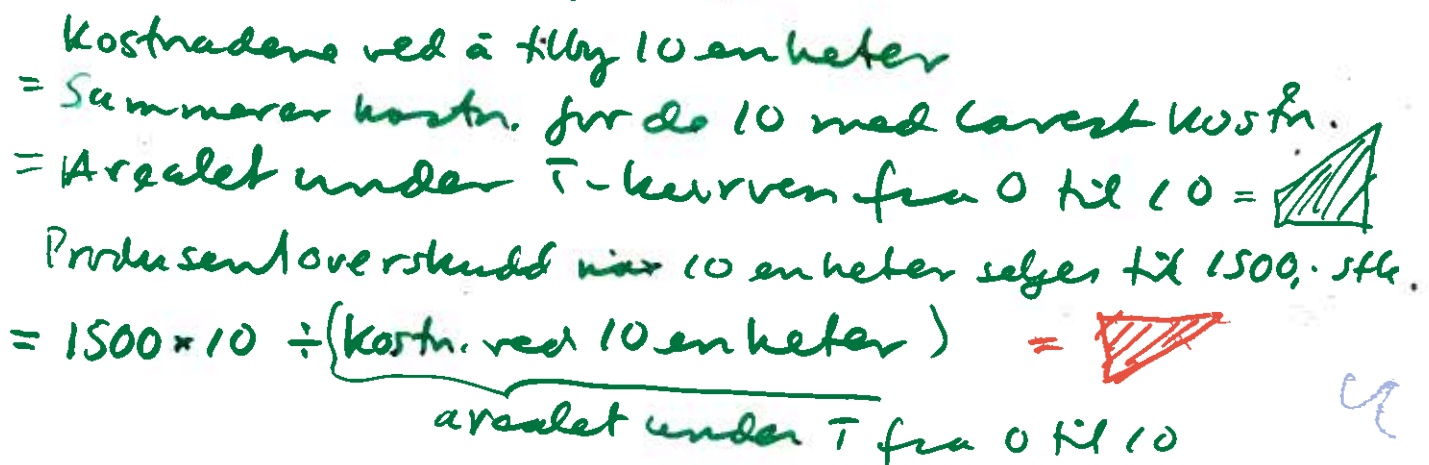 Kostnadene ved å tilby 10 enheter
= Summerer kostn. for de 10 med lavest kostn.
= Arealet under T-kurven fra 0 til 10 =
Produsentoverskudd når 10 enheter selges til 1500,- stk.
= 1500 * 10 ÷ (kostn. ved 10 enheter) =
arealet under T fra 0 til 10